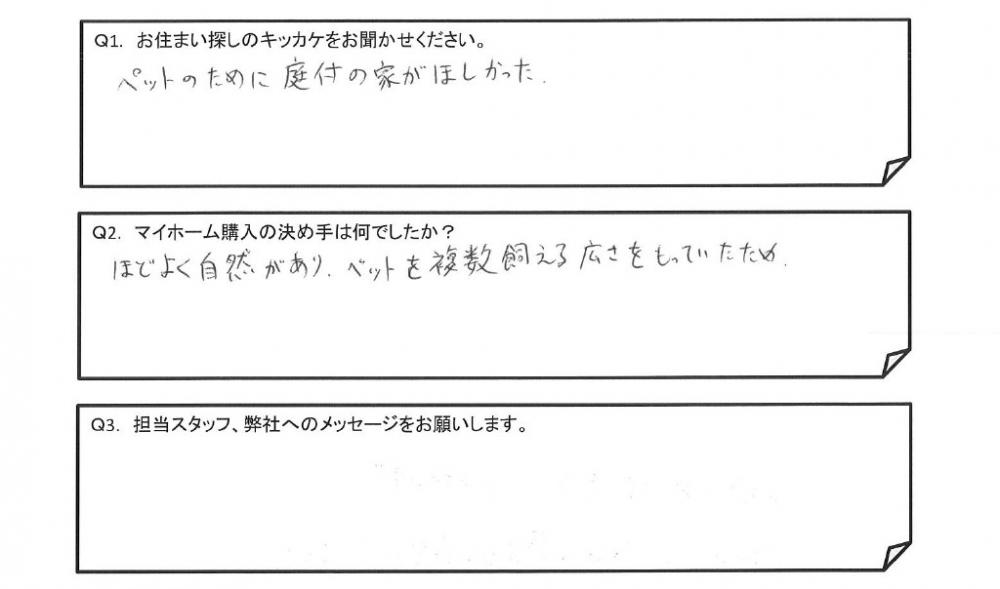 Q1. お住まい探しのキッカケをお聞かせください。
ペットのために庭付の家がほしかった.
Q2. マイホーム購入の決め手は何でしたか？
ほどよく自然があり、ペットを複数飼える広さをもっていたため.
Q3. 担当スタッフ、弊社へのメッセージをお願いします。